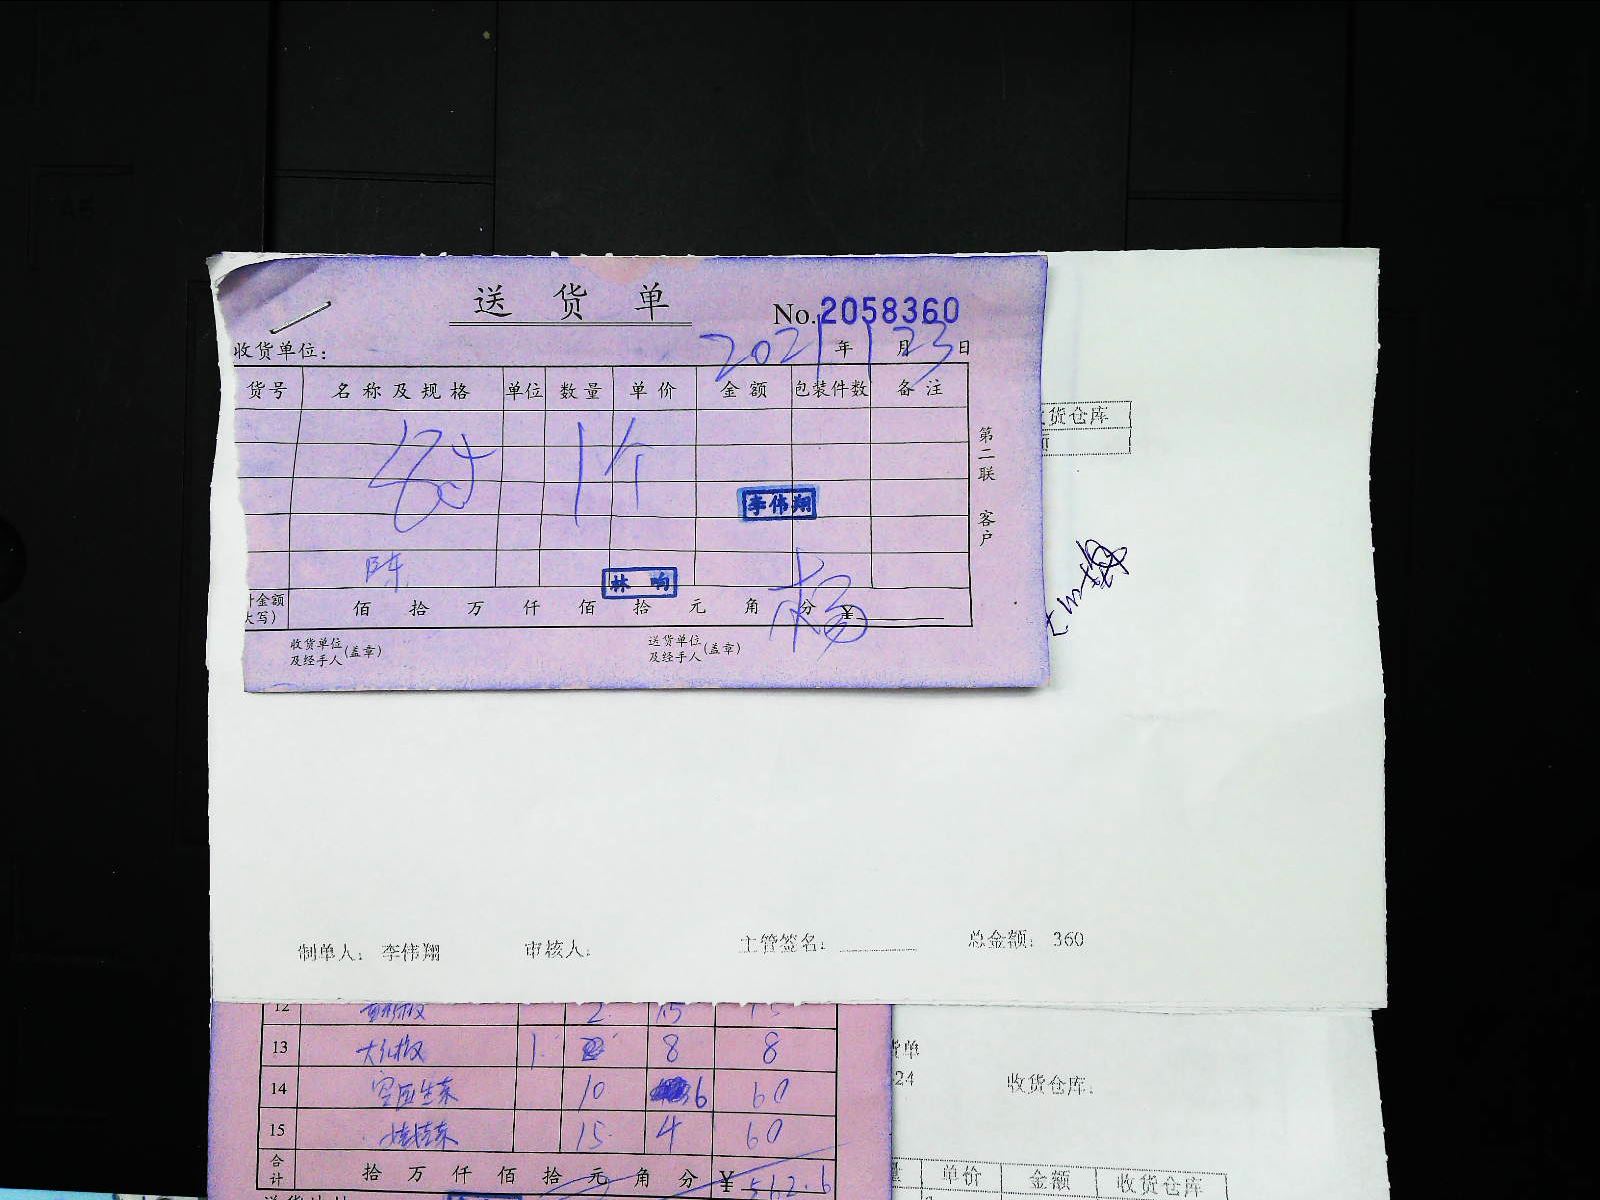 送货单 No.2058360
收货单位: 2021年1月23日
货号 名称及规格 单位 数量 单价 金额 包装件数 备注
收货仓库
1个
李伟翔
第二联 客户
陈
林 响
杨
佰 拾 万 仟 佰 拾 元 角 分 ¥
收货单位及经手人(盖章) 送货单位及经手人(盖章)
制单人: 李伟翔 审核人: 主管签名: 总金额: 360
12 2 15
13 1 8 8
14 10 6 60
15 15 4 60
合计 拾 万 仟 佰 拾 元 角 分 ¥ 562.6
24 收货仓库:
单价 金额 收货仓库